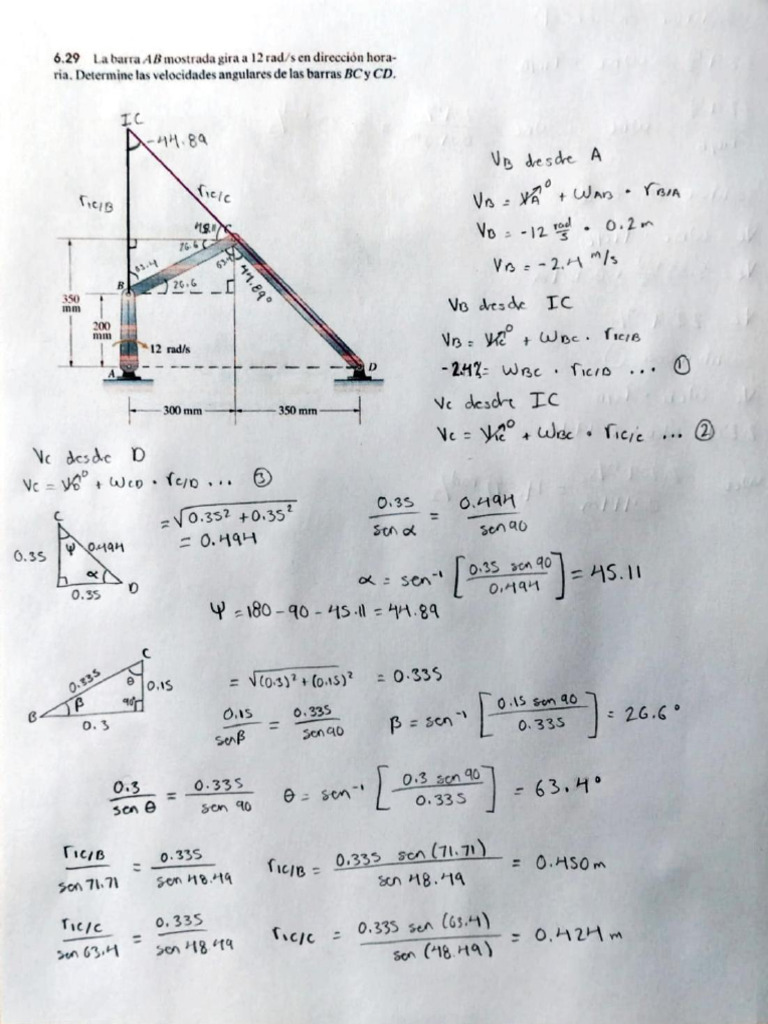 6.29 La barra AB mostrada gira a 12 rad/s en dirección hora-
ria. Determine las velocidades angulares de las barras BC y CD.
IC
-44.89
rIC/B
rIC/C
26.6
63.4
B
26.6
44.89°
350
mm
200
mm
12 rad/s
A
D
300 mm
350 mm
VB desde A
VB = VA⁰ + WAB · rB/A
VB = -12 rad/s · 0.2 m
VB = -2.4 m/s
VB desde IC
VB = VIC⁰ + WBC · rIC/B
= WBC · rIC/B ... ①
Vc desde IC
Vc = VIC⁰ + WBC · rIC/C ... ②
Vc desde D
Vc = VD⁰ + WCD · rC/D ... ③
C
0.35
ψ
0.494
α
0.35
D
= √0.35² + 0.35²
= 0.494
0.35 / sen α = 0.494 / sen 90
α = sen⁻¹ [0.35 sen 90 / 0.494] = 45.11
ψ = 180 - 90 - 45.11 = 44.89
C
0.335
θ
0.15
B
β
90°
0.3
= √(0.3)² + (0.15)² = 0.335
0.15 / sen β = 0.335 / sen 90
β = sen⁻¹ [0.15 sen 90 / 0.335] = 26.6°
0.3 / sen θ = 0.335 / sen 90
θ = sen⁻¹ [0.3 sen 90 / 0.335] = 63.4°
rIC/B / sen 71.71 = 0.335 / sen 48.49
rIC/B = 0.335 sen (71.71) / sen 48.49 = 0.450 m
rIC/C / sen 63.4 = 0.335 / sen 48.49
rIC/C = 0.335 sen (63.4) / sen (48.49) = 0.424 m